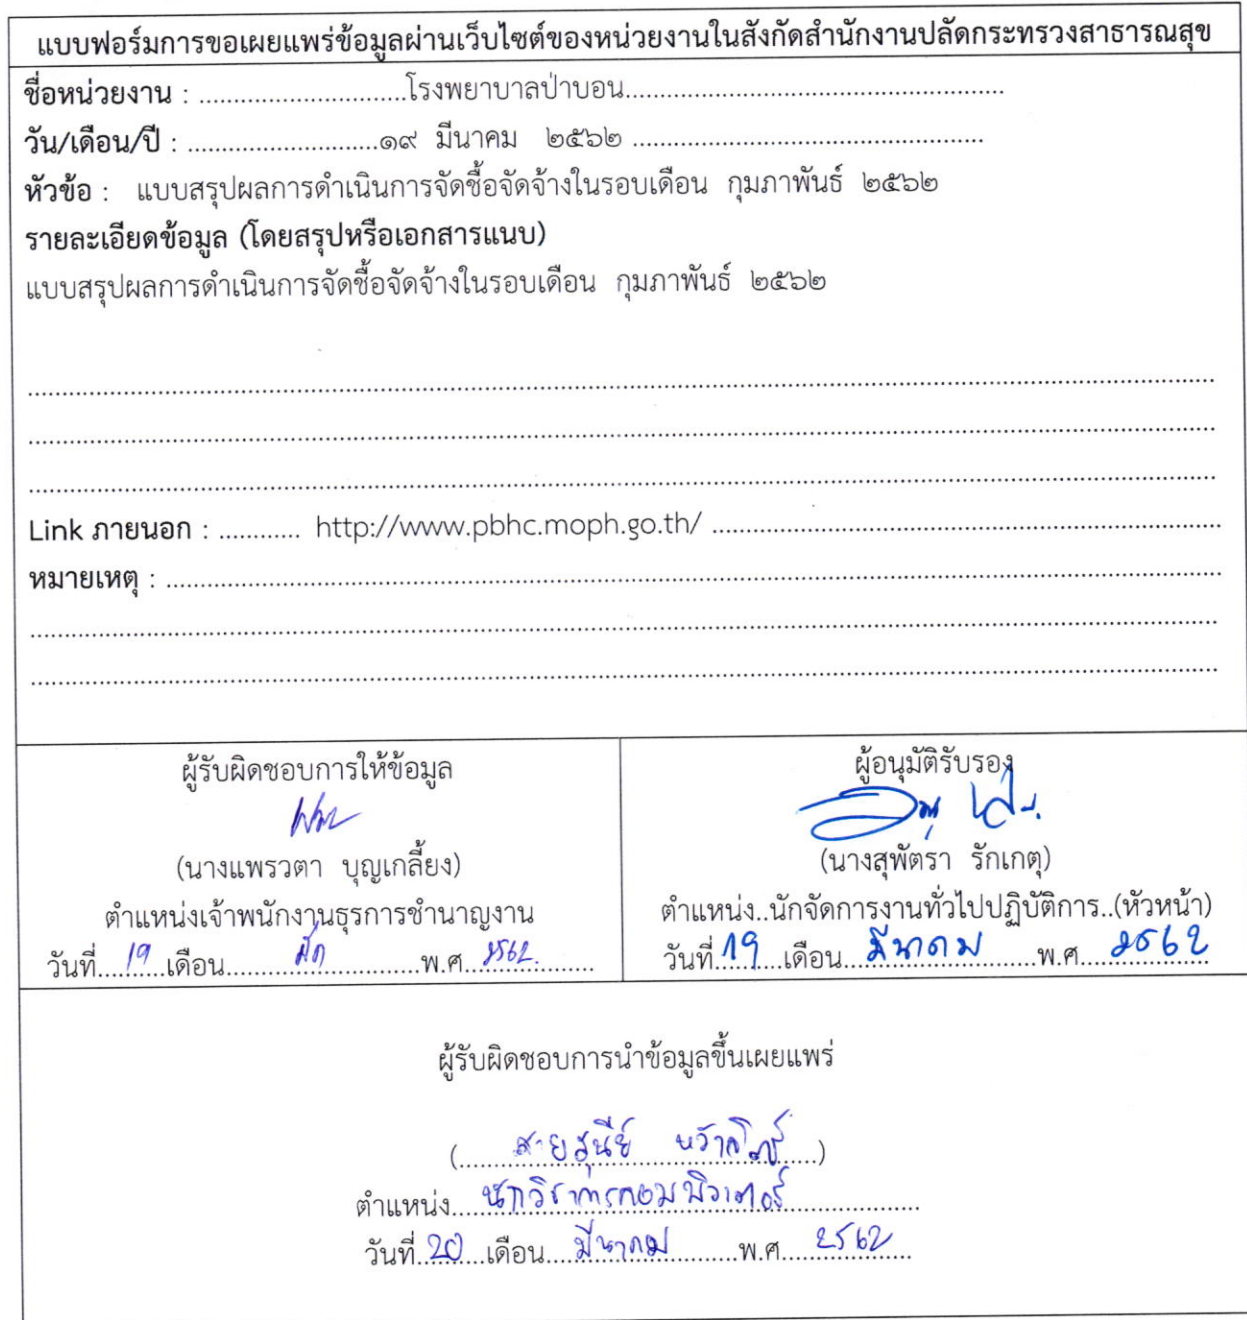 แบบฟอร์มการขอเผยแพร่ข้อมูลผ่านเว็บไซต์ของหน่วยงานในสังกัดสำนักงานปลัดกระทรวงสาธารณสุข
ชื่อหน่วยงาน : ..............................โรงพยาบาลป่าบอน.......................................................
วัน/เดือน/ปี : ............................๑๙ มีนาคม ๒๕๖๒ ...................................................
หัวข้อ : แบบสรุปผลการดำเนินการจัดซื้อจัดจ้างในรอบเดือน กุมภาพันธ์ ๒๕๖๒
รายละเอียดข้อมูล (โดยสรุปหรือเอกสารแนบ)
แบบสรุปผลการดำเนินการจัดซื้อจัดจ้างในรอบเดือน กุมภาพันธ์ ๒๕๖๒
Link ภายนอก : ............ http://www.pbhc.moph.go.th/ ..........................................................................
หมายเหตุ : ..........................................................................................................
ผู้รับผิดชอบการให้ข้อมูล
(นางแพรวตา บุญเกลี้ยง)
ตำแหน่งเจ้าพนักงานธุรการชำนาญงาน
วันที่....19....เดือน..........มีค..............พ.ศ..2562..........
ผู้อนุมัติรับรอง
(นางสุพัตรา รักเกตุ)
ตำแหน่ง..นักจัดการงานทั่วไปปฏิบัติการ..(หัวหน้า)
วันที่.19.....เดือน...มีนาคม........พ.ศ....2562
ผู้รับผิดชอบการนำข้อมูลขึ้นเผยแพร่
(........สายสุนีย์ .....)
ตำแหน่ง....นักวิชาการคอมพิวเตอร์....................
วันที่.20.....เดือน....มีนาคม..........พ.ศ.....2562